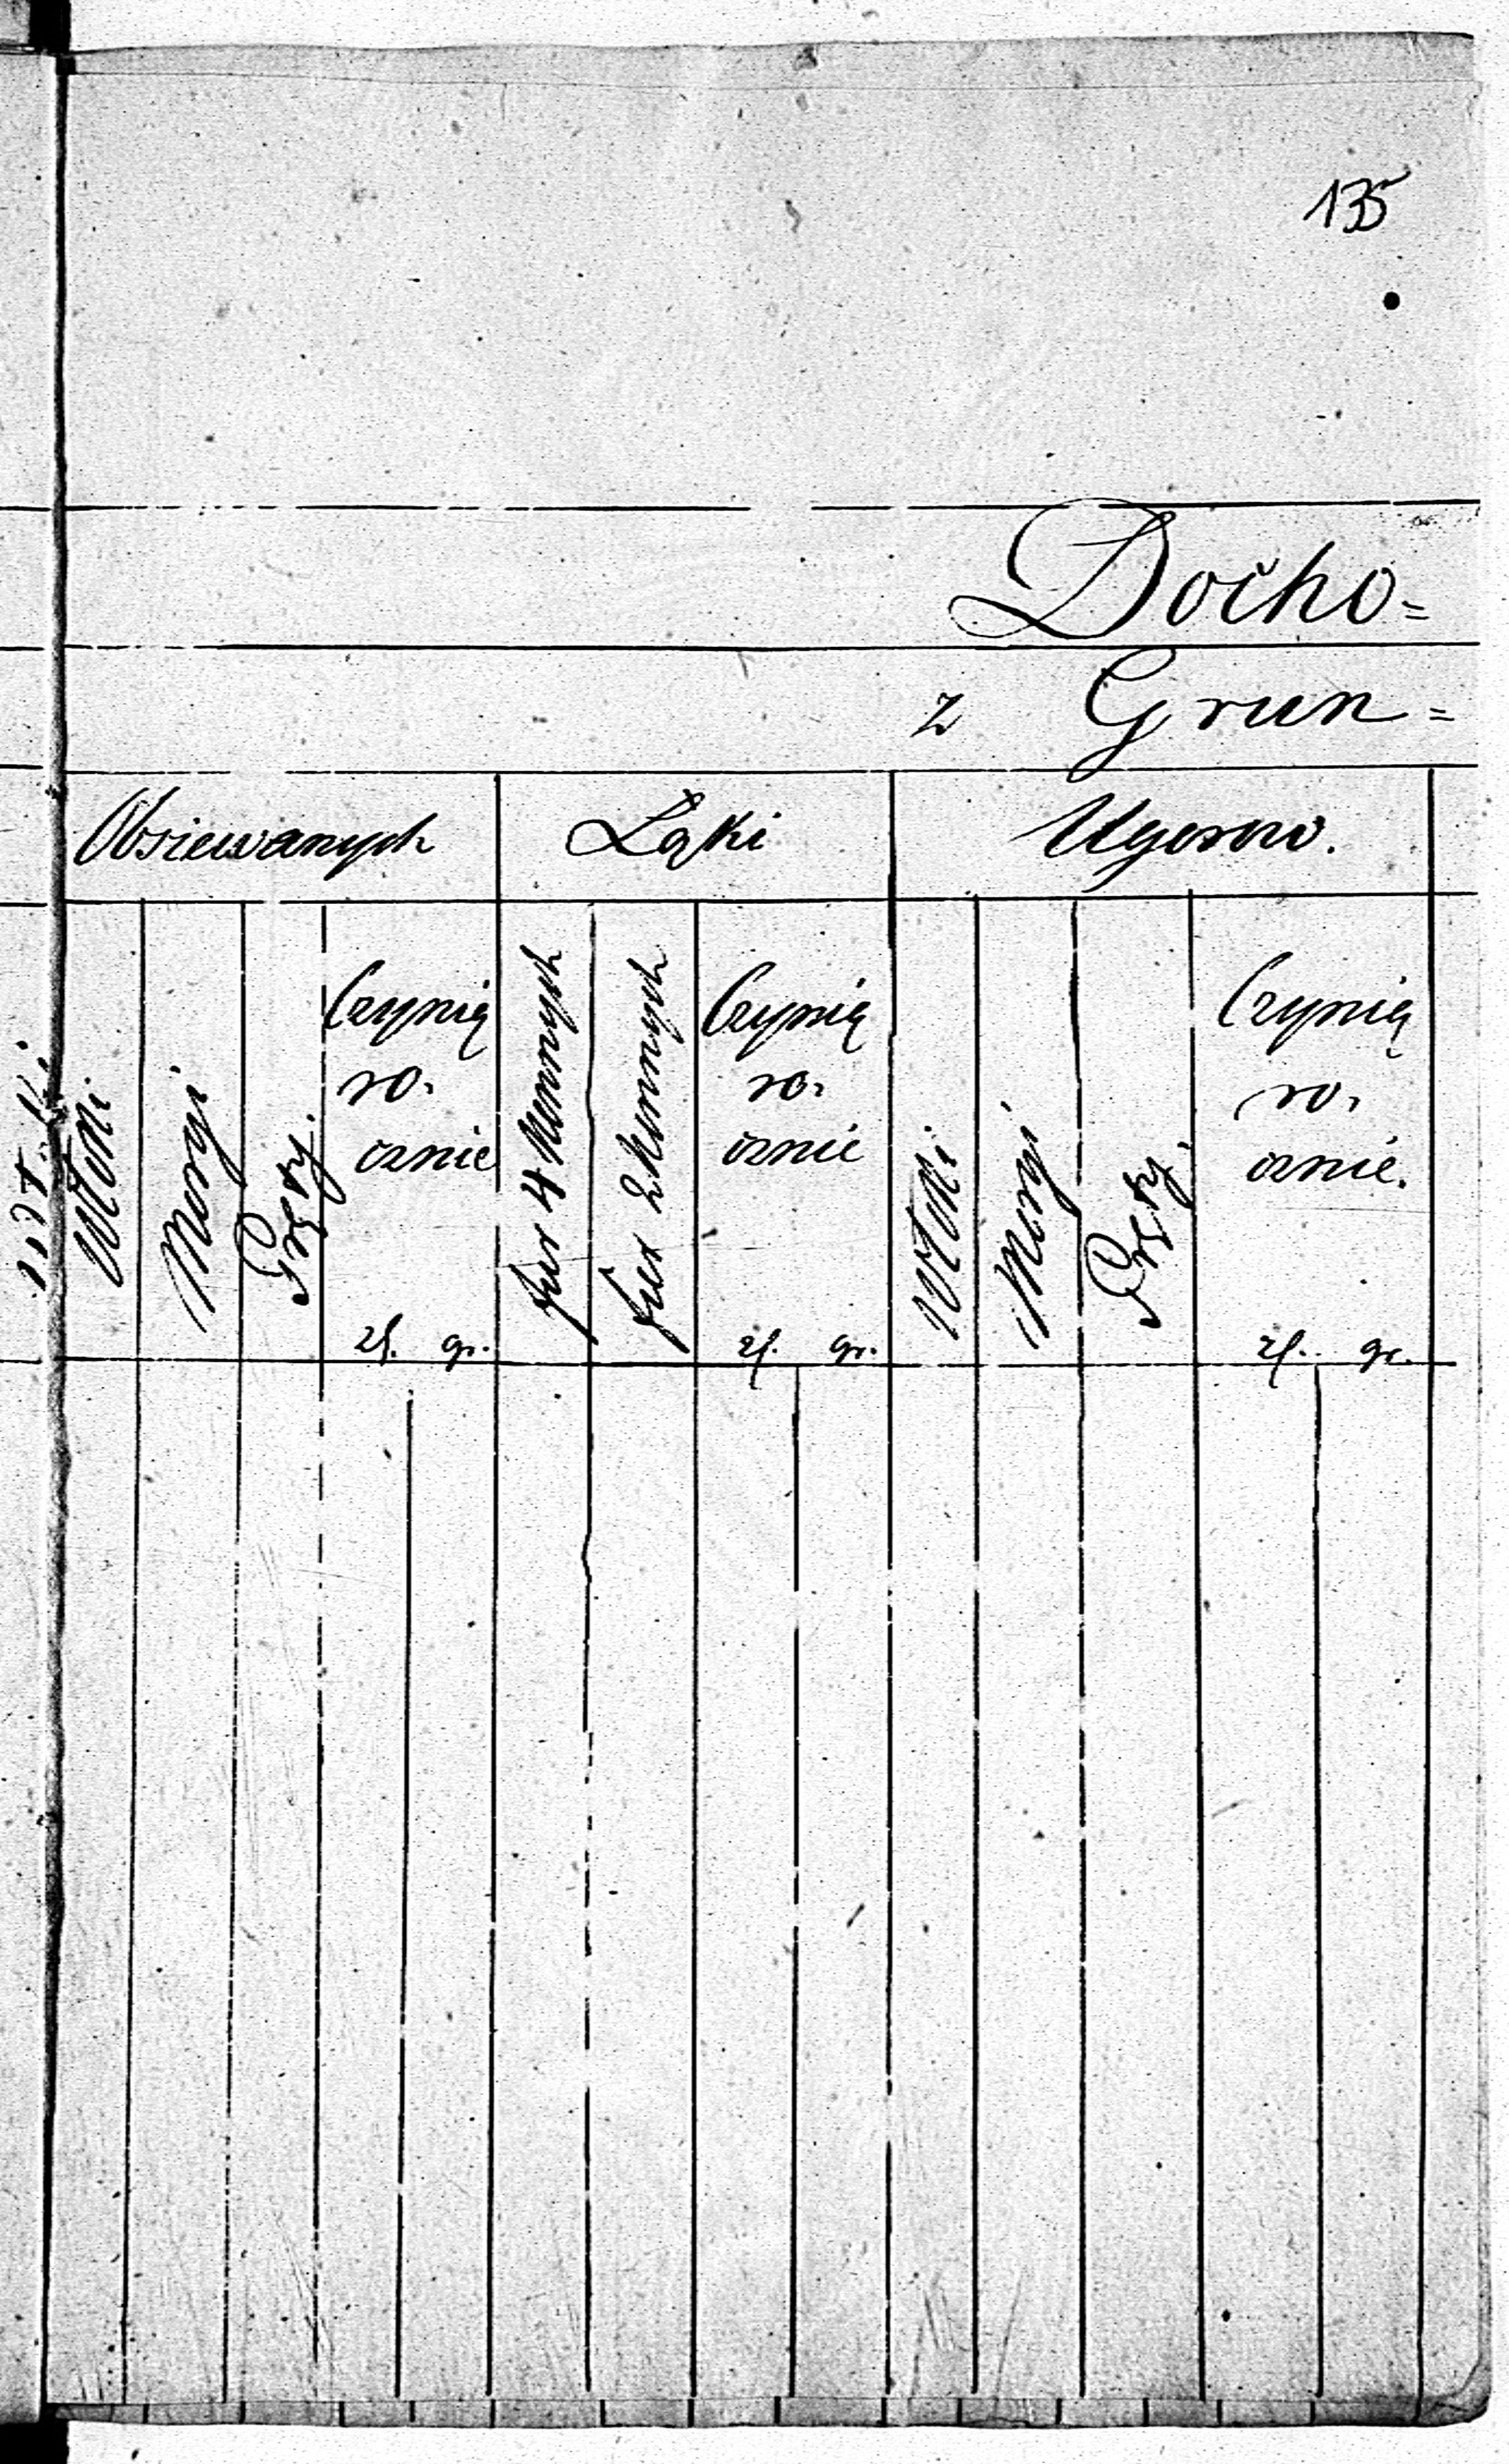 135
Docho=
z Grun=
Obsiewanych Łąki Ugorow.
Włóki Morgi Pręty. Czynią ro- cznie zł. gr. fur 4 konnych fur 2 konnych Czynią ro- cznie zł. gr. Włóki Morgi Pręty. Czynią ro- cznie. zł. gr.